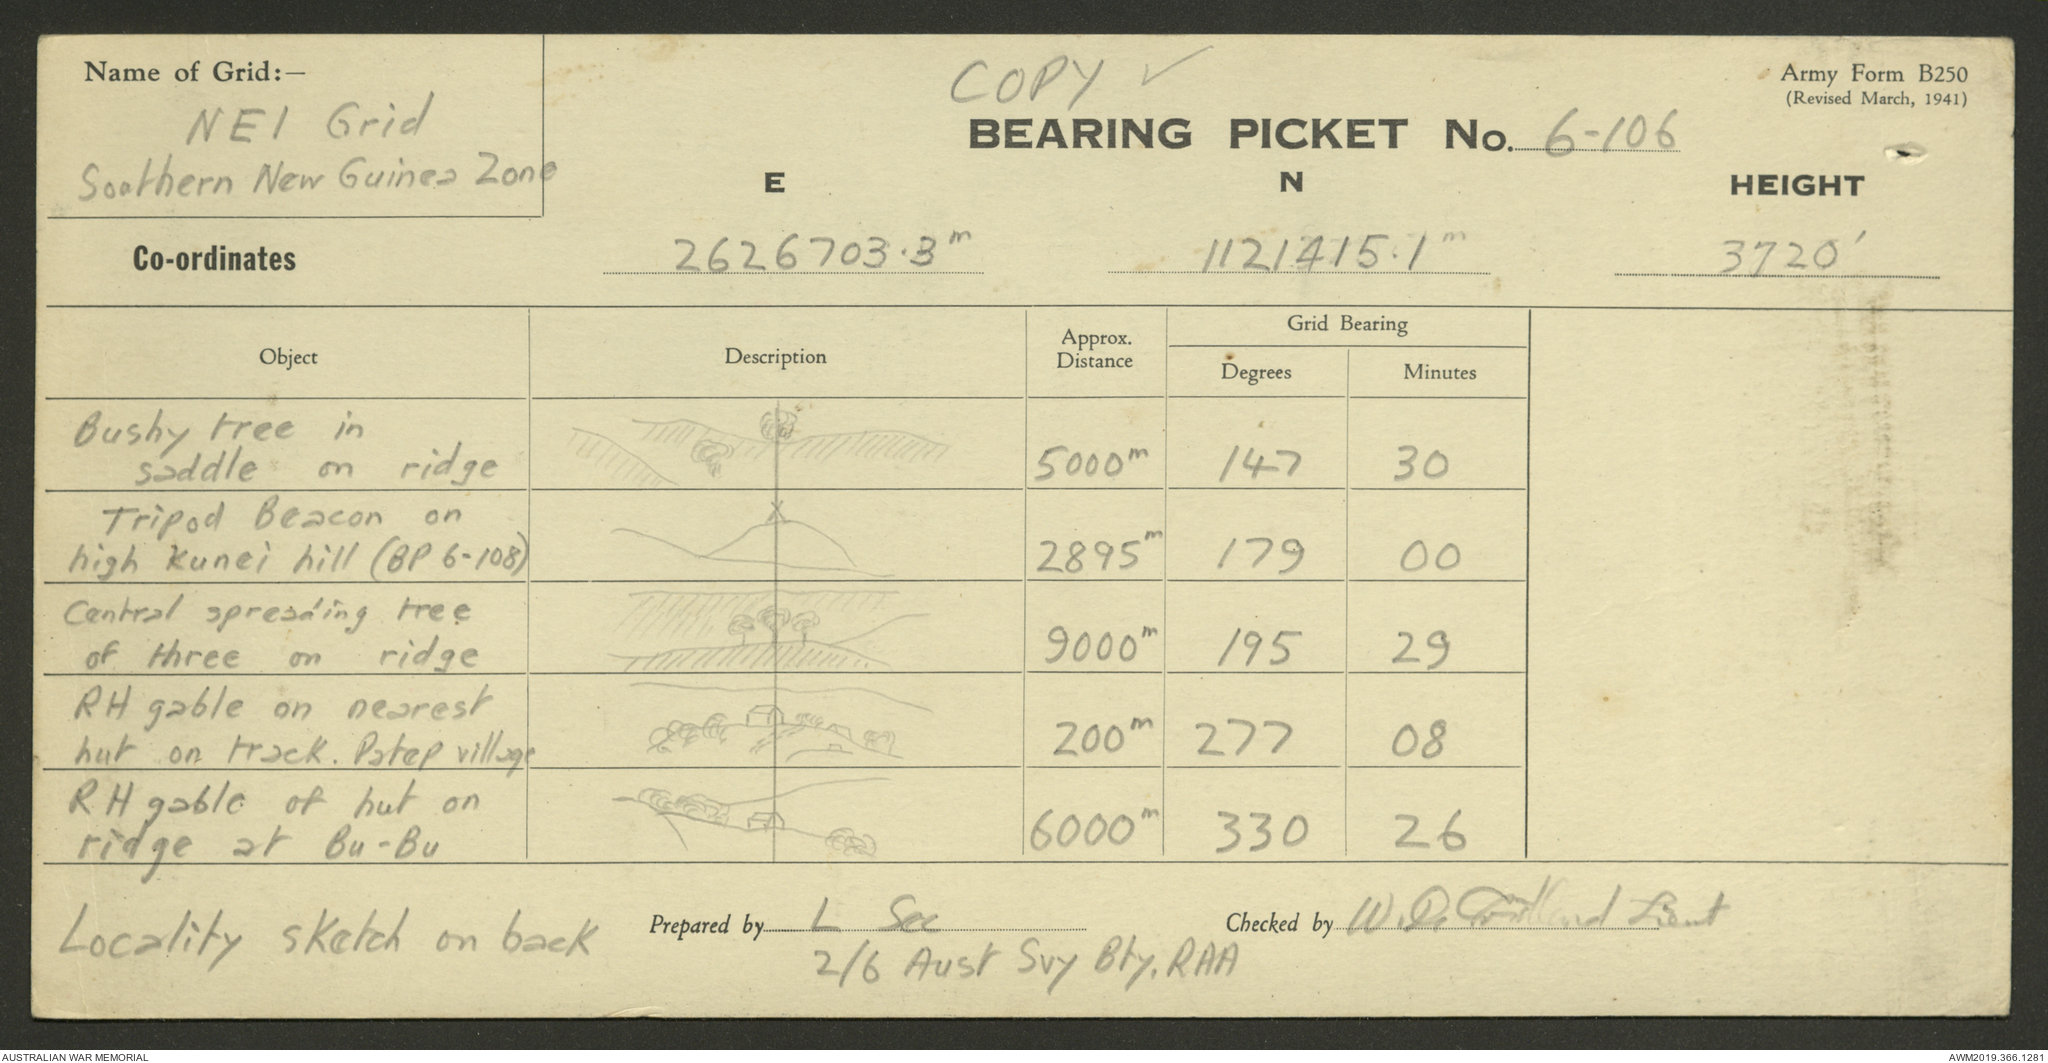 Name of Grid:—
NEI Grid
Southern New Guinea Zone
COPY ✓
Army Form B250
(Revised March, 1941)
BEARING PICKET No. 6-106
E
N
HEIGHT
Co-ordinates
2626703.3m
1121415.1m
3720'
Object
Description
Approx.
Distance
Grid Bearing
Degrees
Minutes
Bushy tree in
saddle on ridge
5000m
147
30
Tripod Beacon on
high Kunei hill (BP 6-108)
2895m
179
00
Central spreading tree
of three on ridge
9000m
195
29
RH gable on nearest
hut on track. Patep village
200m
277
08
RH gable of hut on
ridge at Bu-Bu
6000m
330
26
Locality sketch on back
Prepared by L See
2/6 Aust Svy Bty, RAA
Checked by W. D. Lieut
AUSTRALIAN WAR MEMORIAL
AWM2019.366.1281